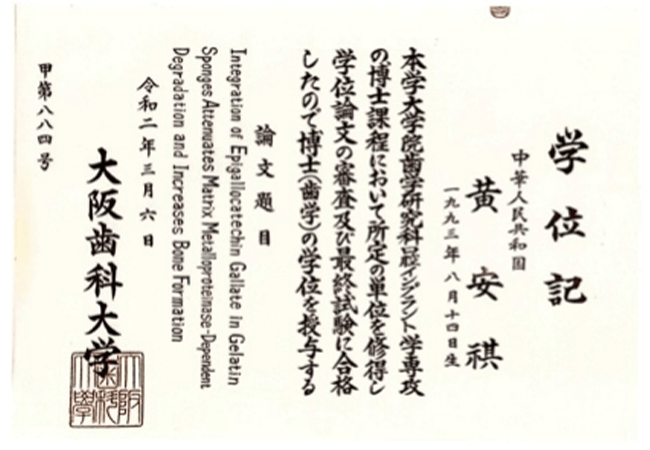 学位記
中華人民共和国
黄安祺
一九九三年八月十四日生
本学大学院歯学研究科口腔インプラント学専攻
の博士課程において所定の単位を修得し
学位論文の審査及び最終試験に合格
したので博士(歯学)の学位を授与する
論文題目
Integration of Epigallocatechin Gallate in Gelatin
Sponges Attenuates Matrix Metalloproteinase-Dependent
Degradation and Increases Bone Formation
令和二年三月六日
大阪歯科大学
甲第八八四号